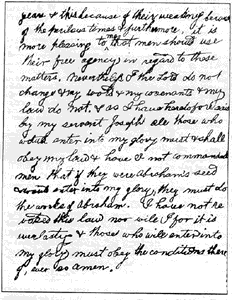 years & this because of their weakness because
of the perilous times & furthermore, it is
more pleasing to me that men should use
their free agency in regard to these
matters. Nevertheless I the Lord do not
change & my word & my covenants & my
law do not. & as I have heretofore said
by my servant Joseph all those who
would enter into my glory must & shall
obey my law & have I not commanded
men that if they were Abraham's seed
& would enter into my glory, they must do
the works of Abraham. I have not re
voked this law nor will I for it is
everlasting & those who will enter into
my glory must obey the conditions there
of, even so amen.